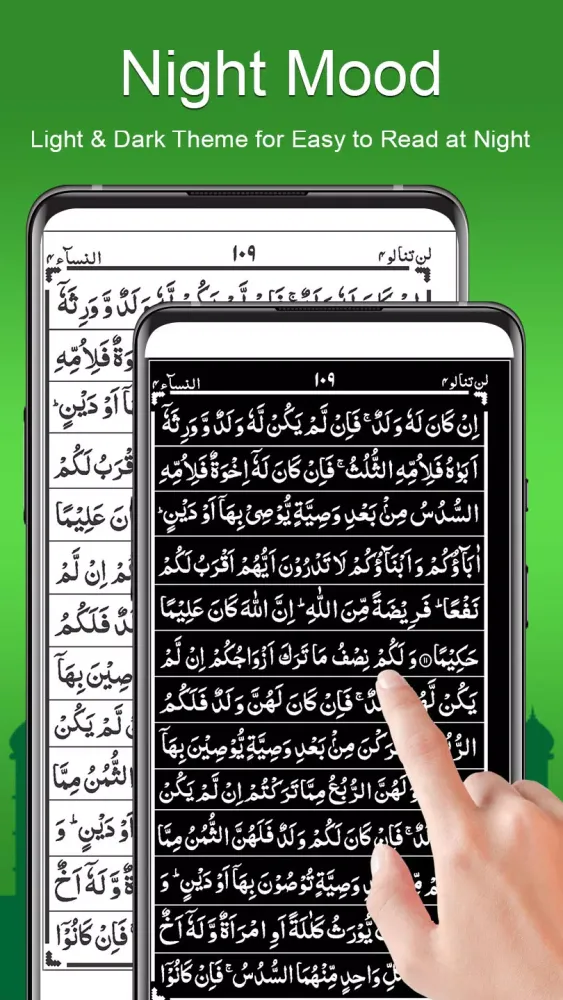 Night Mood
Light & Dark Theme for Easy to Read at Night
لن تنالو۴ ۱۰۹ النسآء۴
وَلَدٌ وَّ وَرِثَهٗۤ
فَلِاُمِّهِ
اَوْ دَيْنٍ ؕ
لَكُمْ
عَلِيْمًا
اِنْ لَّمْ
فَلَكُمُ
بِهَاۤ
لَّمْ يَكُنْ
الثُّمُنُ مِمَّا
اَوْ دَيْنٍ ؕ وَ
وَّ لَهٗۤ اَخٌ
فَاِنْ كَانُوْۤا
لن تنالو۴ ۱۰۹ النسآء۴
اِنْ كَانَ لَهٗ وَلَدٌ ۚ فَاِنْ لَّمْ يَكُنْ لَّهٗ وَلَدٌ وَّ وَرِثَهٗۤ
اَبَوٰهُ فَلِاُمِّهِ الثُّلُثُ ۚ فَاِنْ كَانَ لَهٗۤ اِخْوَةٌ فَلِاُمِّهِ
السُّدُسُ مِنْۢ بَعْدِ وَصِيَّةٍ يُّوْصِيْ بِهَاۤ اَوْ دَيْنٍ ؕ
اٰبَآؤُكُمْ وَ اَبْنَآؤُكُمْ لَا تَدْرُوْنَ اَيُّهُمْ اَقْرَبُ لَكُمْ
نَفْعًا ؕ فَرِيْضَةً مِّنَ اللّٰهِ ؕ اِنَّ اللّٰهَ كَانَ عَلِيْمًا
حَكِيْمًا ۱۱ وَ لَكُمْ نِصْفُ مَا تَرَكَ اَزْوَاجُكُمْ اِنْ لَّمْ
يَكُنْ ۚ فَاِنْ كَانَ لَهُنَّ وَلَدٌ فَلَكُمُ
مِنْۢ بَعْدِ وَصِيَّةٍ يُّوْصِيْنَ بِهَاۤ
لَهُنَّ الرُّبُعُ مِمَّا تَرَكْتُمْ اِنْ لَّمْ يَكُنْ
فَاِنْ كَانَ لَكُمْ وَلَدٌ فَلَهُنَّ الثُّمُنُ مِمَّا
وَصِيَّةٍ تُوْصُوْنَ بِهَاۤ اَوْ دَيْنٍ ؕ وَ
يُّوْرَثُ كَلٰلَةً اَوِ امْرَاَةٌ وَّ لَهٗۤ اَخٌ
وَاحِدٍ مِّنْهُمَا السُّدُسُ ۚ فَاِنْ كَانُوْۤا